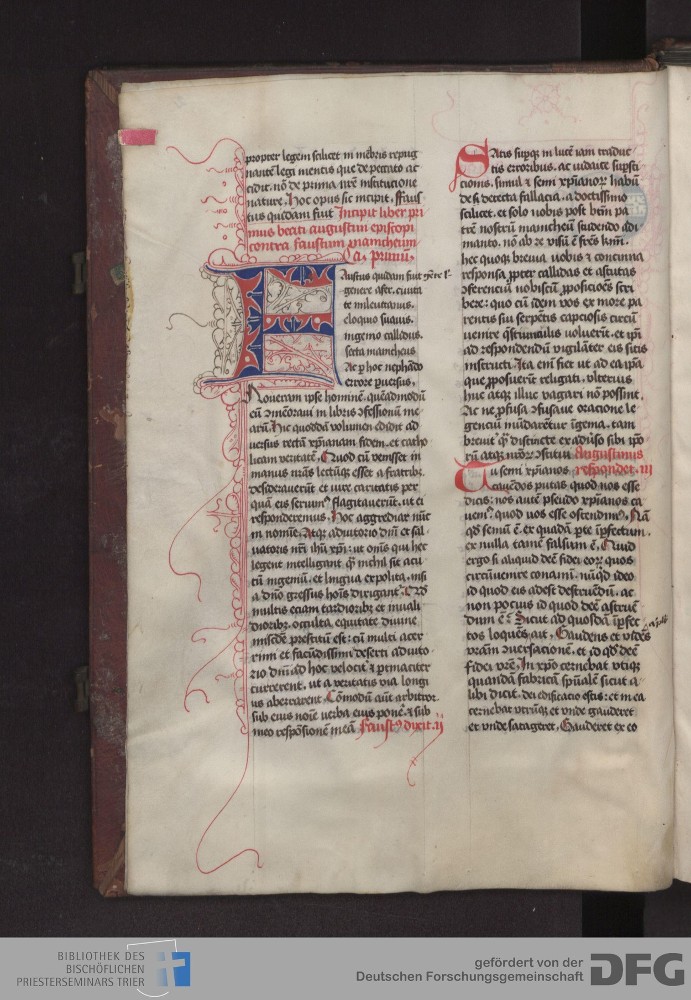 propter legem scilicet in mēbris repug
nantē legi mentis que de peccato ac
cidit. nō de prima nr̄e institucione
nature. Hoc opus sic incipit. ffaus
tus quedam fuit Incipit liber pri
mus beati augustini episcopi
contra faustum manicheum
Ca. primū.
Austus quidam fuit
genere afer. ciuita
te mileuitanus.
eloquio suauis.
ingenio callidus.
secta manicheus
Ac ꝑ hoc nephādo
errore ꝑuersus.
Noueram ipse hominē. quēadmodū
eū ꝯmēoraui in libris ꝯfessionū me
arū. Hic quoddā volumen edidit ad
uersus rectā xp̄ianam fidem. et catho
licam veritatē. Quod cū venisset in
manus nr̄as lectūqꝫ esset a fratribꝫ
desiderauerūt et iure caritatis per
quā eis seruimꝰ flagitauerūt. ut ei
responderemus. Hoc aggrediar nūc
in nomīe. Atqꝫ adiutorio dn̄i et sal
uatoris nr̄i ihū xp̄i. ut om̄s qui hec
legent intelligant qꝫ nichil sit acu
tū ingeniū. et lingua expolita. nisi
a dn̄o gressus hoīs dirigantꝰ. Qd
multis eciam tardioribꝫ et inuali
dioribꝫ. occulta equitate diuine
misc̄de prestitū est. cū multi acer
rimi et facūdissimi deserti adiuto
rio dn̄i ad hoc velocitꝰ et ꝑtinaciter
currerent. ut a veritatis via longi
us aberrarent. Cōmodū aūt arbitror
sub eius noīe uerba eius ponē. et sub
meo respōsionē meā Faustꝰ dixit. ij
Satis suꝑqꝫ in lucē iam traduc
tis erroribus. ac iudaice suꝑsti
cionis. simul et semi xp̄ianoꝝ habū
de ē detecta fallacia. a doctissimo
scilicet. et solo nobis post btm̄ pa
trē nostrū manicheū studendo adi
manto. nō ab re visū ē frēs kmī.
hec quoqꝫ breuia uobis et concinna
responsa ꝓpter callidas et astutas
ꝯferenciū nobiscū ꝓposicōes scri
bere. quo cū idem vos ex more pa
rentis sui serpentis capciosis circū
uenire q̄stiunculis voluerīt. et ip̄i
ad rn̄spondendū vigilāter eis sitis
instructi. Ita enī fiet ut ad ea ip̄a
que ꝓposuerīt religati. vlterius
huc atqꝫ illuc vagari nō possint.
Ac ne ꝓfusa ꝯfusaue oracione le
genciū mūdaretur īgenia. tam
breuitꝰ qꝫ distincte ex aduīso sibi ipō
rū atqꝫ nr̄oꝝ ꝯstitui Augustinus
Tu semi xp̄ianos respondet. iij
cauēdos putas. quod nos esse
dicis. nos autē pseudo xp̄ianos ca
uemꝰ. quod uos esse ostendimꝰ. Nā
qd̄ semū ē. ex quadā ꝑte īpfectum.
ex nulla tamē falsum ē. Quid
ergo si aliquid deē fidei eoꝝ quos
circūuenire conami. nūqd̄ ideo
id quod eis adest destruēdū. ac
non pocius id quod deē astruē
dum ē. Sicut ad quosdā īpfec
tos loquēs ait. Gaudens et vidēs
vr̄am ꝯuersacionē. et id qd̄ deē
fidei vr̄e. In xp̄o cernebat vtiqꝫ
quandā fabricā spūalē sicut a
libi dicit. dei edificatio estis. et in ea
cernebat vtrūqꝫ et vnde gauderet
et vnde satageret. Gauderet ex eo
BIBLIOTHEK DES
BISCHÖFLICHEN
PRIESTERSEMINARS TRIER
gefördert von der
Deutschen Forschungsgemeinschaft
DFG